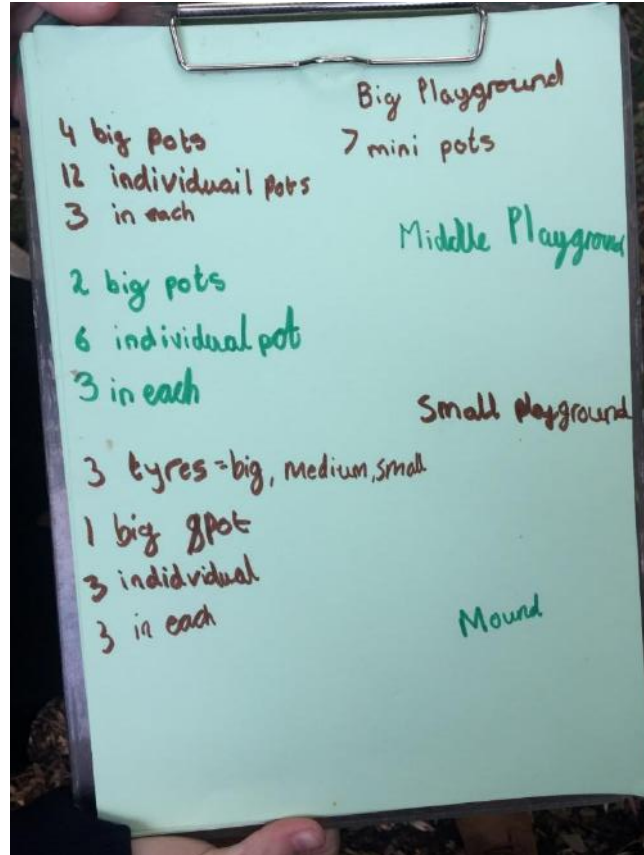 Big Playground
4 big pots
7 mini pots
12 individuail pots
3 in each
Middle Playground
2 big pots
6 individual pot
3 in each
Small playground
3 tyres=big, medium, small
1 big gpot
3 indidvidual
3 in each
Mound